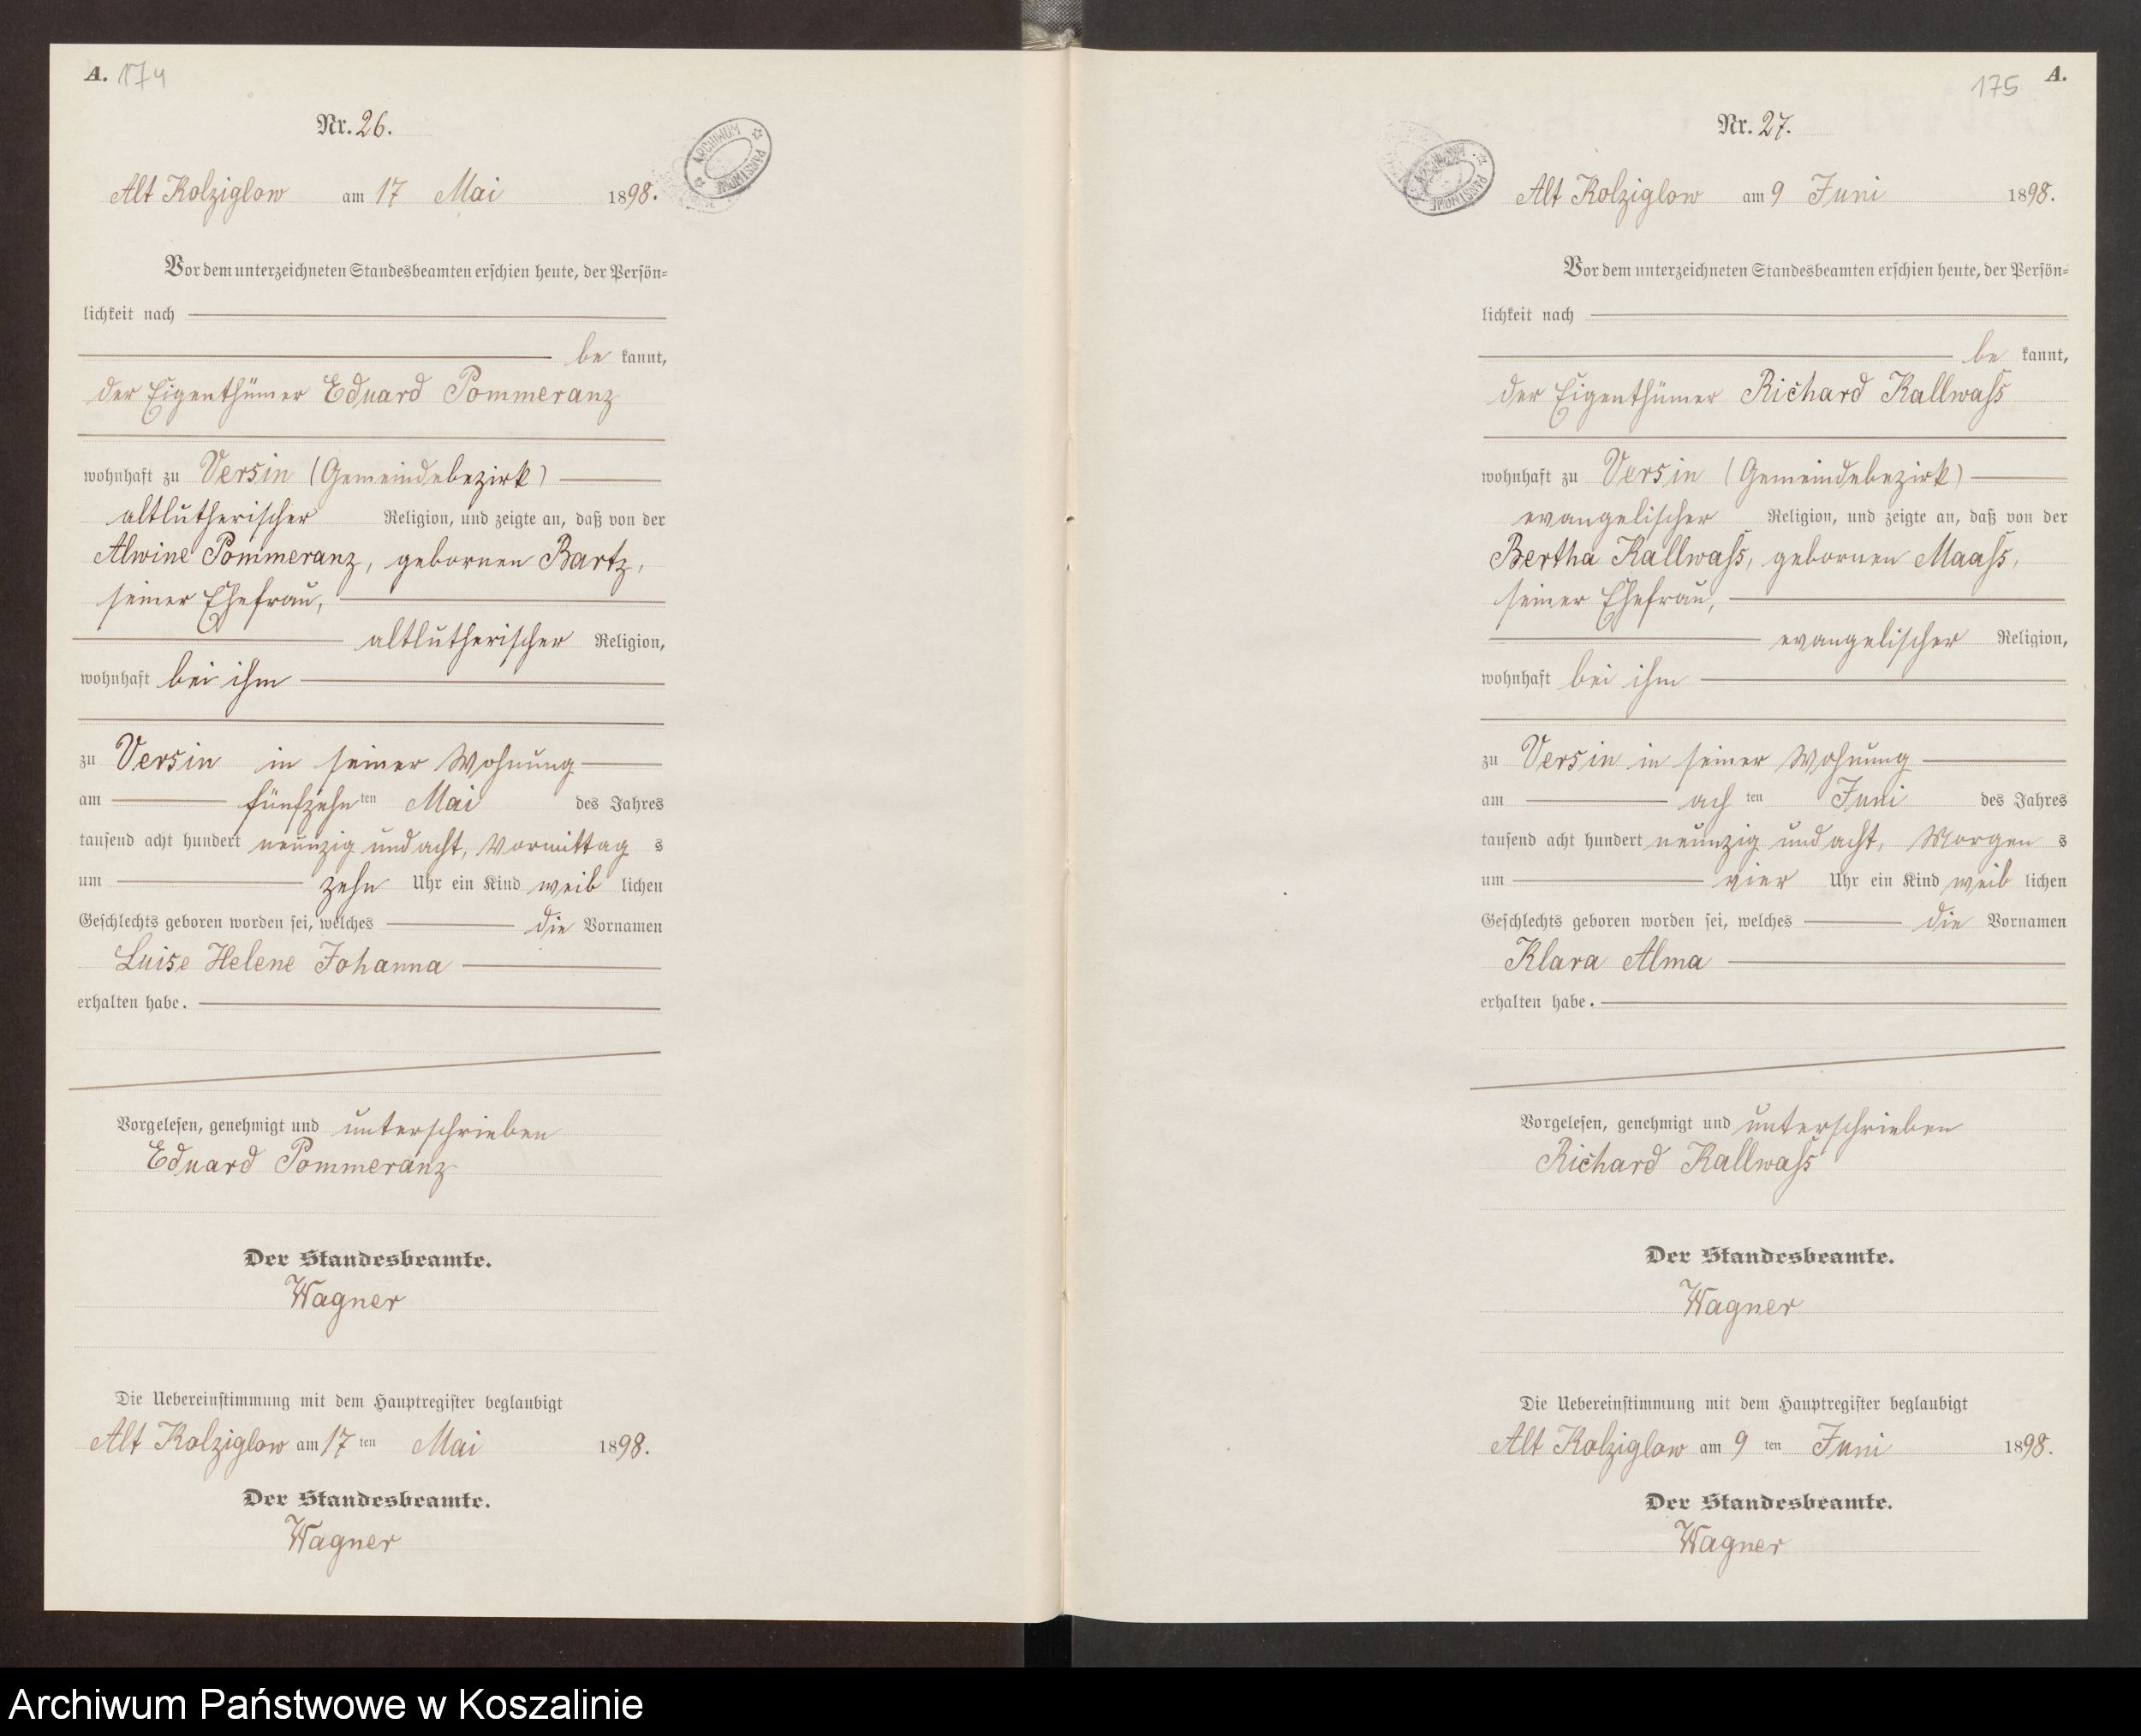 A. 174
Nr. 26.
Alt Kolziglow am 17 Mai 1898.
Vor dem unterzeichneten Standesbeamten erschien heute, der Persön-
lichkeit nach
be kannt,
der Eigenthümer Eduard Pommeranz
wohnhaft zu Versin (Gemeindebezirk)
altlutherischer Religion, und zeigte an, daß von der
Alwine Pommeranz, gebornen Bartz,
seiner Ehefrau,
altlutherischer Religion,
wohnhaft bei ihm
zu Versin in seiner Wohnung
am fünfzehn ten Mai des Jahres
tausend acht hundert neunzig und acht, Vormittag s
um zehn Uhr ein Kind weib lichen
Geschlechts geboren worden sei, welches die Vornamen
Luise Helene Johanna
erhalten habe.
Vorgelesen, genehmigt und unterschrieben
Eduard Pommeranz
Der Standesbeamte.
Wagner
Die Uebereinstimmung mit dem Hauptregister beglaubigt
Alt Kolziglow am 17 ten Mai 1898.
Der Standesbeamte.
Wagner
ARCHIWUM PAŃSTWOWE
175 A.
Nr. 27.
ARCHIWUM PAŃSTWOWE
Alt Kolziglow am 9 Juni 1898.
Vor dem unterzeichneten Standesbeamten erschien heute, der Persön-
lichkeit nach
be kannt,
der Eigenthümer Richard Kallwaß
wohnhaft zu Versin (Gemeindebezirk)
evangelischer Religion, und zeigte an, daß von der
Bertha Kallwaß, gebornen Maaß,
seiner Ehefrau,
evangelischer Religion,
wohnhaft bei ihm
zu Versin in seiner Wohnung
am ach ten Juni des Jahres
tausend acht hundert neunzig und acht, Morgen s
um vier Uhr ein Kind weib lichen
Geschlechts geboren worden sei, welches die Vornamen
Klara Alma
erhalten habe.
Vorgelesen, genehmigt und unterschrieben
Richard Kallwaß
Der Standesbeamte.
Wagner
Die Uebereinstimmung mit dem Hauptregister beglaubigt
Alt Kolziglow am 9 ten Juni 1898.
Der Standesbeamte.
Wagner
Archiwum Państwowe w Koszalinie